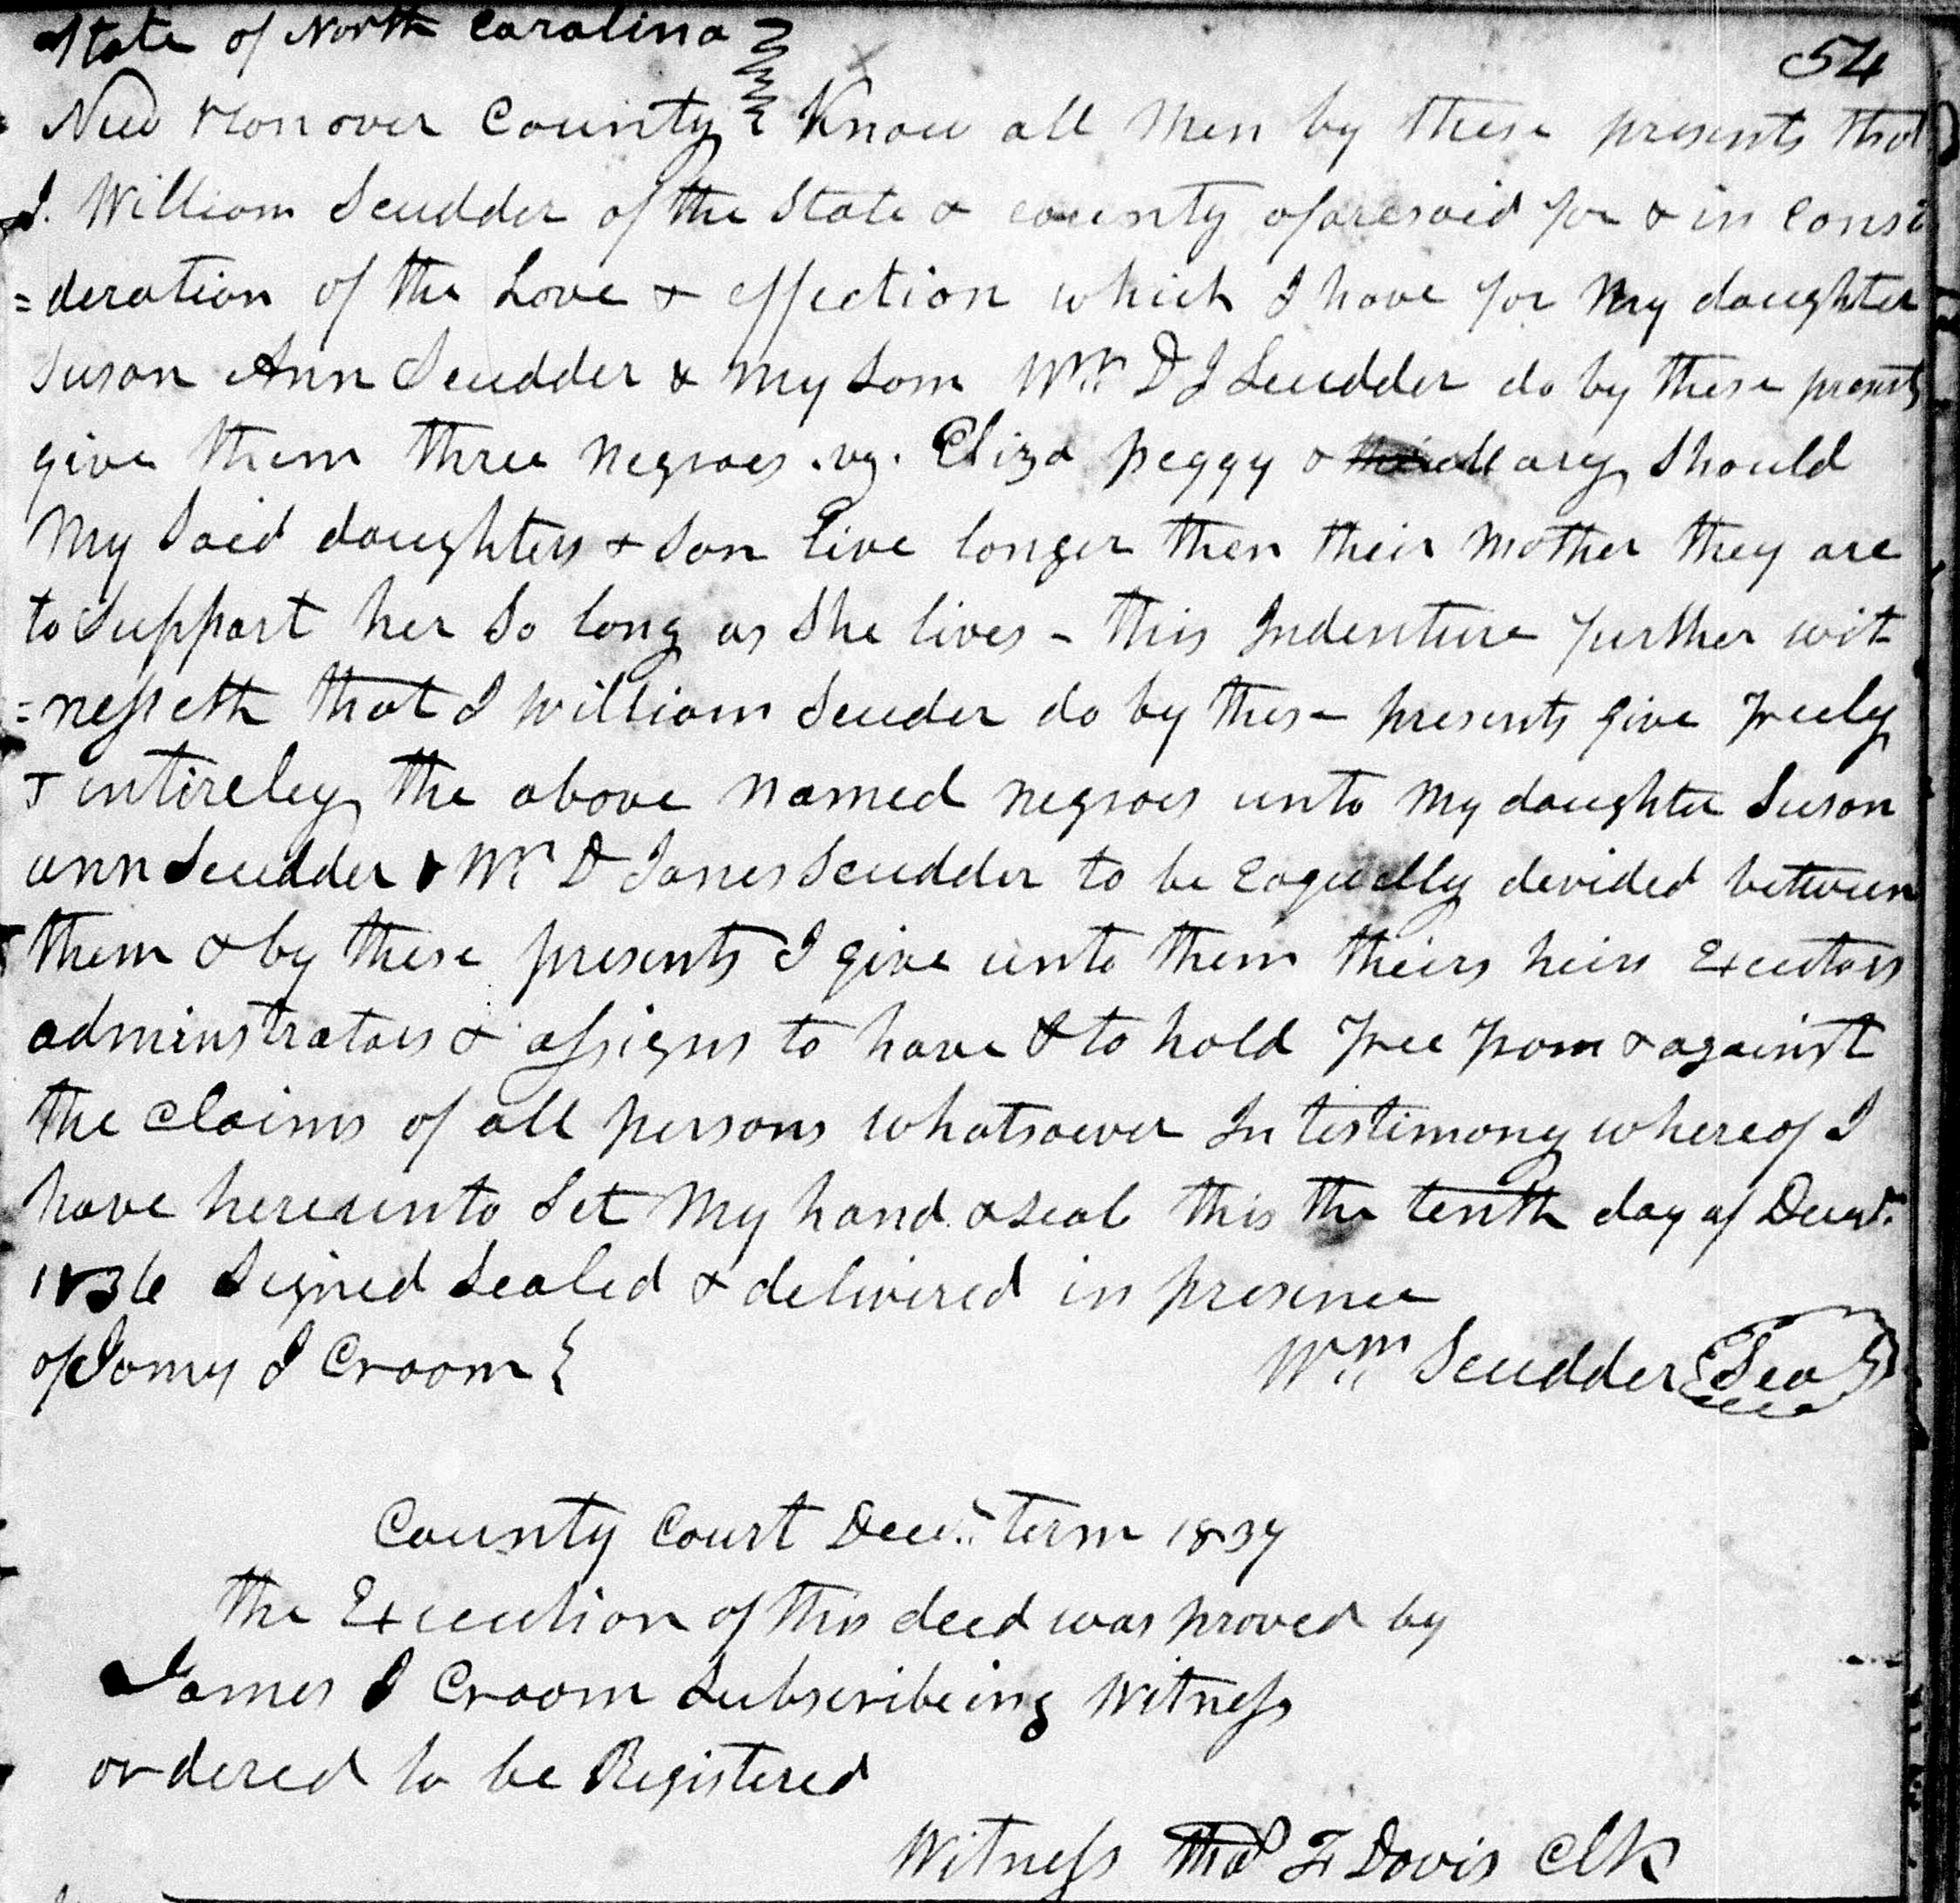 State of North Carolina
54
New Hanover County Know all Men by these presents that
I. William Scudder of the State & county aforesaid for & in consi
=deration of the Love & effection which I have for My daughter
Suson Ann Scudder & My Son Wm D J Scudder do by these presents
give them three Negroes .vz. Eliza Peggy & Mary Should
My Said daughters & Son live longer then their Mother they are
to Support her So long as She lives - this Indenture further wit
=nesseth that I William Scuder do by these presents give freely
& entireley the above Named Negroes unto My daughter Suson
ann Scudder & Wm D Janes Scudder to be Eaqually devided between
them & by these presents I give unto them theirs heirs Executors
adminstrators & assigns to have & to hold free from & against
the claims of all persons whatsoever In testimony whereof I
have hereunto Set My hand & seal this the tenth day of Decr.
1836 Signed Sealed & delivered in presence
of Jomes J Croom Wm Scudder Seal
County Court Decr. term 1837
the Execution of this deed was proved by
James J Croom Subscribeing Witness
ordered to be Registered
Witness Thos F Davis Clk